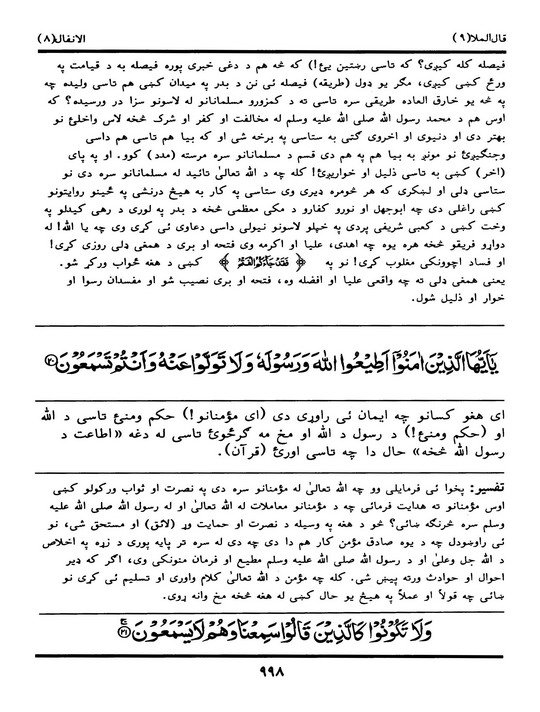 قال الملا(٩) الانفال(٨)
فیصله کله کیږي؟ که تاسې رښتین یئ!) که څه هم د دغې خبرې پوره فیصله به د قیامت په
ورځ کښې کیږي، مګر یو ډول (طریقه) فیصله ئې نن د بدر په میدان کښې هم تاسې ولیده چه
په څه یو خارق العاده طریقې سره تاسې ته د کمزورو مسلمانانو له لاسونو سزا در ورسیده؟ که
اوس هم د محمد رسول الله صلی الله علیه وسلم له مخالفت او کفر او شرک څخه لاس واخلئ نو
بهتر دی او دنیوي او اخروي ګټې به ستاسې په برخه شي او که بیا هم تاسې هم داسې
وجنګېږئ نو مونږ به بیا هم په هم دې قسم د مسلمانانو سره مرسته (مدد) کوو. او په پای
(اخر) کښې به تاسې ذلیل او خوارېږئ! کله چه د الله تعالیٰ تائید له مسلمانانو سره دی نو
ستاسې ډلې او لښکرې که هر څومره ډیرې وي ستاسې په کار به هیڅ درنشي په ځینو روایتونو
کښې راغلي دي چه ابوجهل او نورو کفارو د مکې معظمې څخه د بدر په لوري د رهي کیدلو په
وخت کښې د کعبې شریفې پردې په خپلو لاسونو نیولې داسې دعاوې ئې کړې وې چه یا الله! له
دواړو فریقو څخه هره یوه چه اهدی، علیا او اکرمه وي فتحه او بری د همغې ډلې روزي کړې!
او فساد اچوونکي مغلوب کړې! نو په ﴿ فَقَدْ جَآءَكُمُ الْفَتْحُ ﴾ کښې د هغه ځواب ورکړ شو.
یعنې همغې ډلې ته چه واقعي علیا او افضله وه، فتحه او بری نصیب شو او مفسدان رسوا او
خوار او ذلیل شول.
يٰٓاَيُّهَا الَّذِيْنَ اٰمَنُوْٓا اَطِيْعُوا اللّٰهَ وَرَسُوْلَهٗ وَلَا تَوَلَّوْا عَنْهُ وَاَنْتُمْ تَسْمَعُوْنَ ﴿٢٠﴾
ای هغو کسانو چه ایمان ئې راوړی دی (ای مؤمنانو!) حکم ومنئ تاسې د الله
او (حکم ومنئ!) د رسول د الله او مخ مه ګرځوئ تاسې له دغه «اطاعت د
رسول الله څخه» حال دا چه تاسې اورئ (قرآن).
تفسیر: پخوا ئې فرمایلي وو چه الله تعالیٰ له مؤمنانو سره دی په نصرت او ثواب ورکولو کښې
اوس مؤمنانو ته هدایت فرمائي چه د مؤمنانو معاملات له الله تعالیٰ او له رسول الله صلی الله علیه
وسلم سره څرنګه ښائي؟ څو د هغه په وسیله د نصرت او حمایت وړ (لائق) او مستحق شي، نو
ئې راوښودل چه د یوه صادق مؤمن کار هم دا دی چه دی له سره تر پایه پورې د زړه په اخلاص
د الله جل وعلیٰ او د رسول الله صلی الله علیه وسلم مطیع او فرمان منونکی وي، اګر که ډیر
احوال او حوادث ورته پیښ شي. کله چه مؤمن د الله تعالیٰ کلام واوري او تسلیم ئې کړي نو
ښائي چه قولاً او عملاً په هیڅ یو حال کښې له هغه څخه مخ وانه ړوي.
وَلَا تَكُوْنُوْا كَالَّذِيْنَ قَالُوْا سَمِعْنَا وَهُمْ لَا يَسْمَعُوْنَ ﴿٢١﴾
٩٩٨